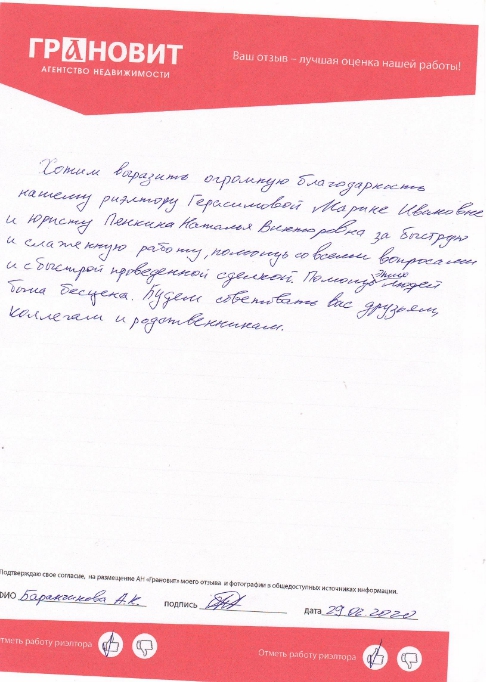 ГРАНОВИТ
АГЕНТСТВО НЕДВИЖИМОСТИ
Ваш отзыв – лучшая оценка нашей работы!
Хотим выразить огромную благодарность
нашему риэлтору Герасимовой Марине Ивановне
и юристу Пенкина Наталья Викторовна за быструю
и слаженную работу, помощь со всеми вопросами
и с быстрой проведенной сделкой. Помощь этих людей
была бесценна. Будем советовать вас друзьям,
коллегам и родственникам.
Подтверждаю свое согласие, на размещение АН «Грановит» моего отзыва и фотографии в общедоступных источниках информации.
ФИО Баранчикова А.К. подпись дата 29.02.2020
Отметь работу риэлтора Отметь работу риэлтора